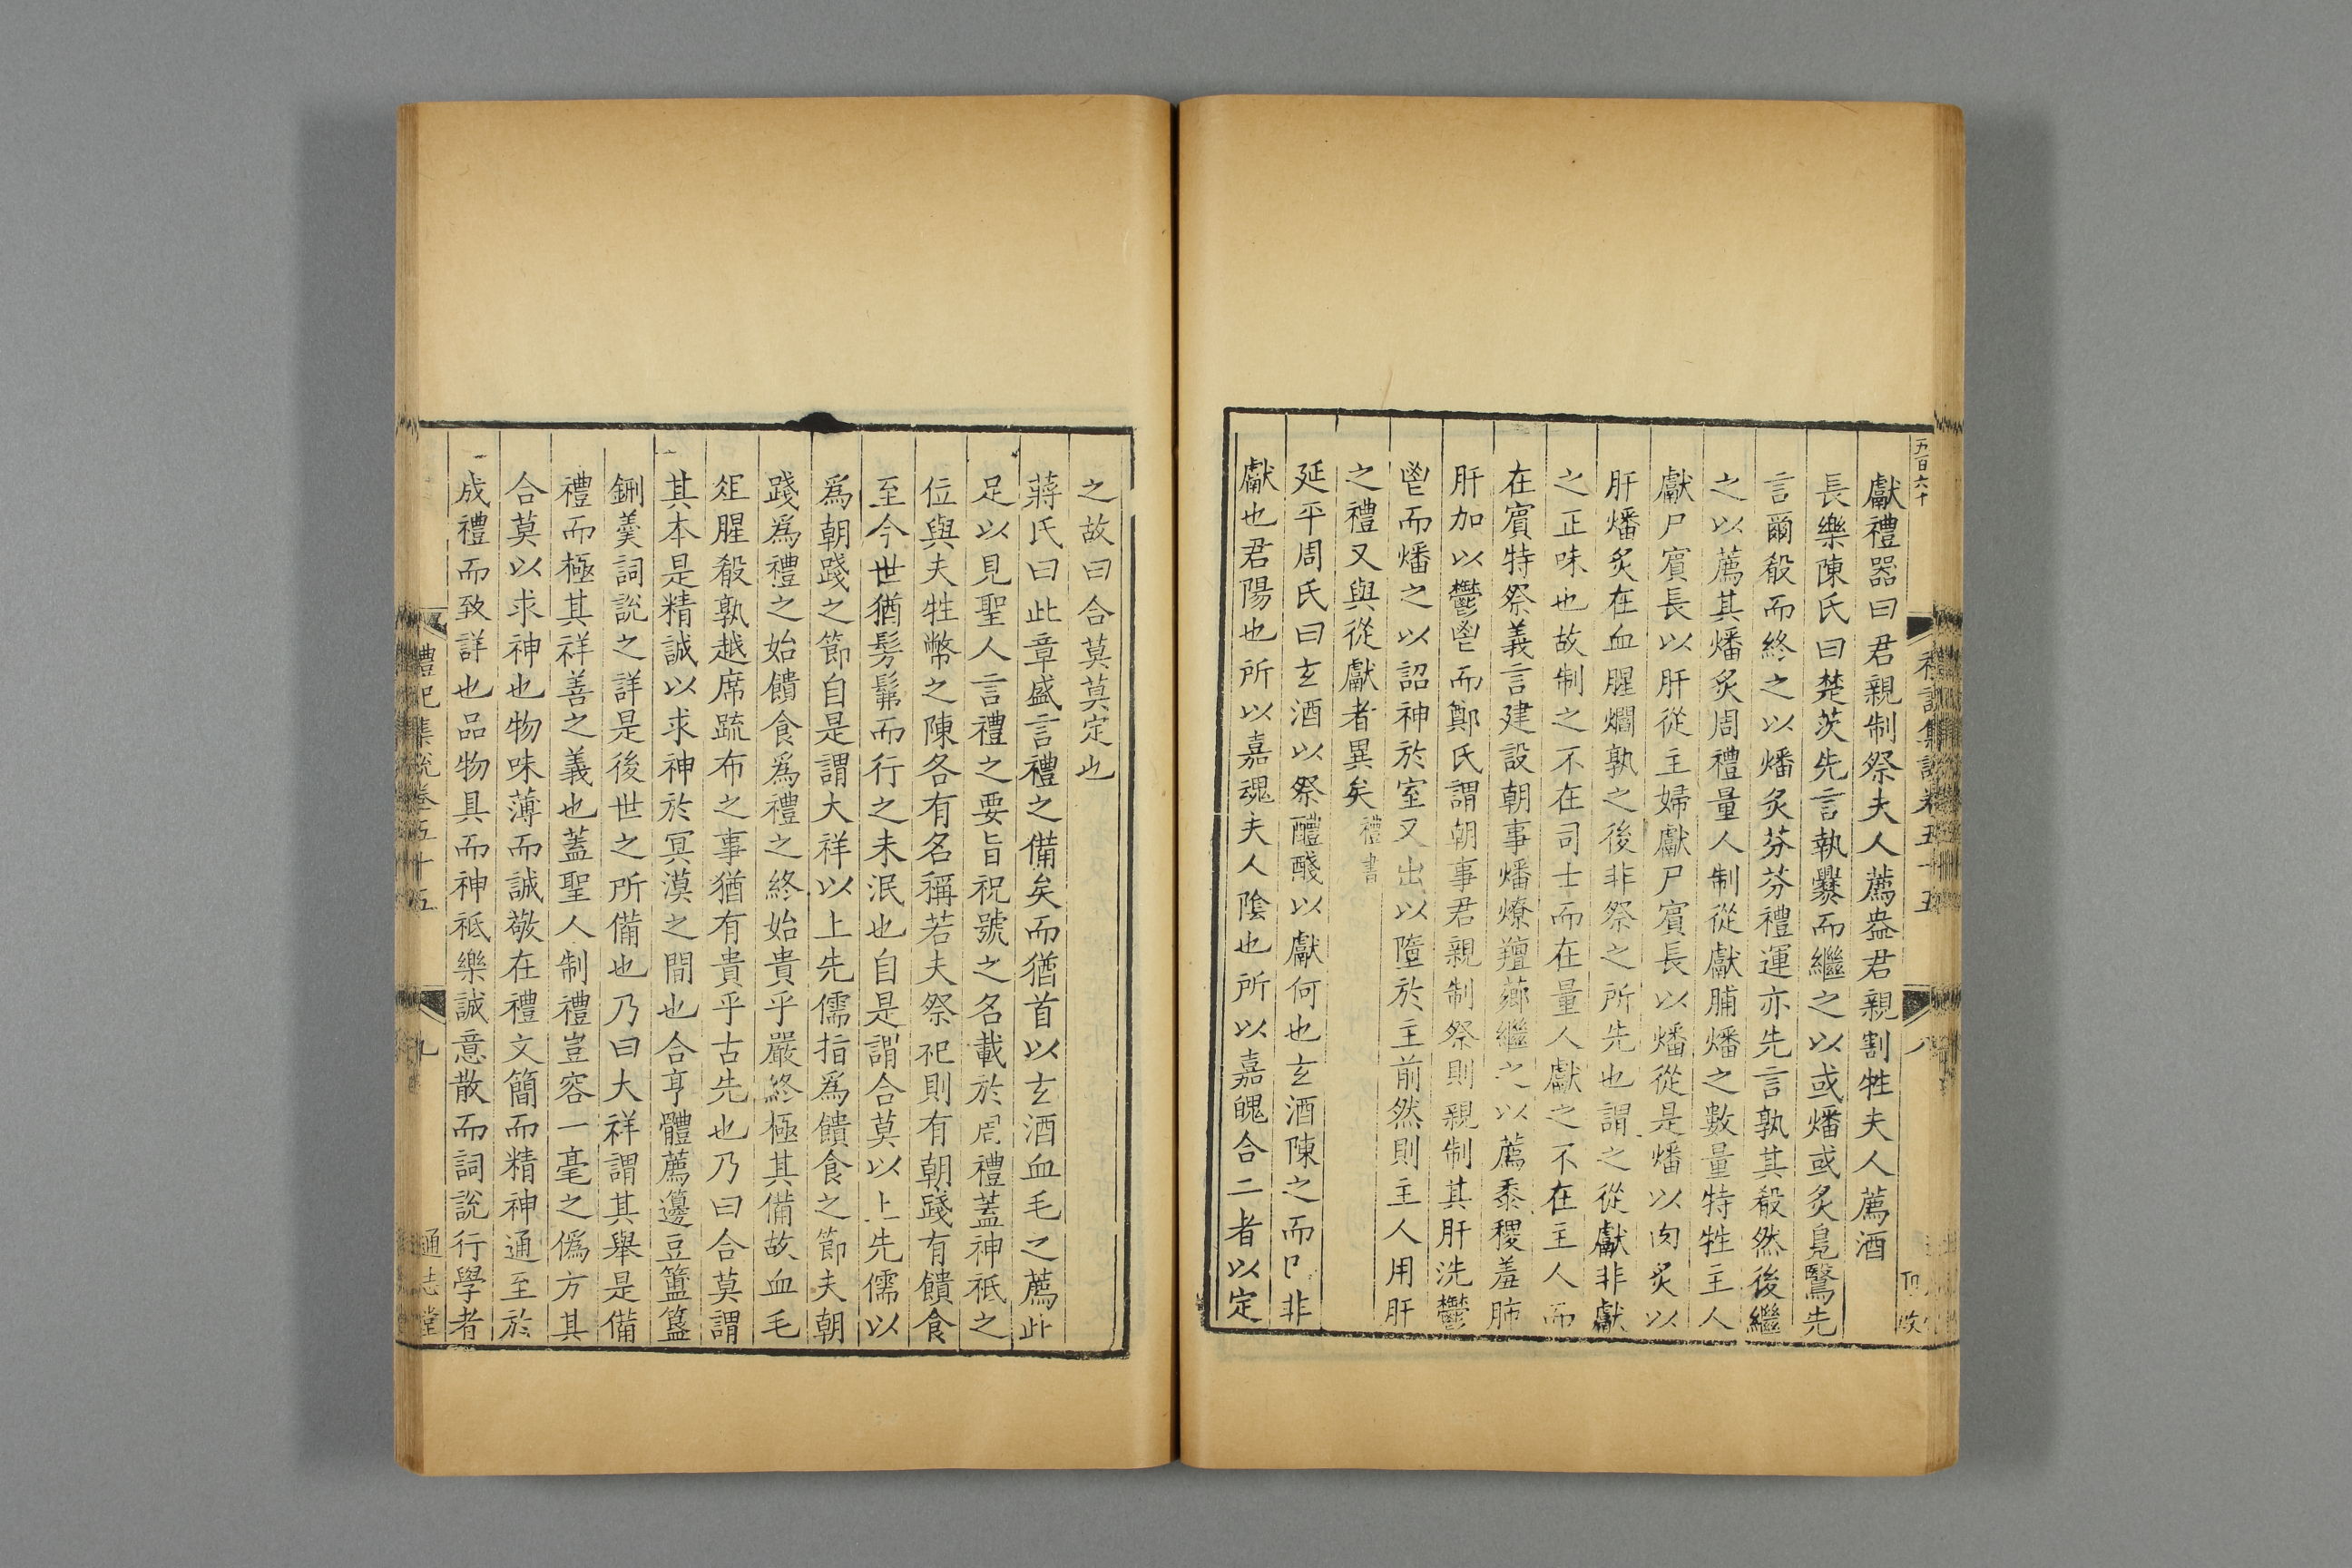 五百六十
禮記集說卷五十五
八
獻禮器曰君親制祭夫人薦盎君親割牲夫人薦酒
長樂陳氏曰楚茨先言執爨而繼之以或燔或炙鳧鷖先
言爾殽而終之以燔炙芬芬禮運亦先言孰其殽然後繼
之以薦其燔炙周禮量人制從獻脯燔之數量特牲主人
獻尸賓長以肝從主婦獻尸賓長以燔從是燔以肉炙以
肝燔炙在血腥爓孰之後非祭之所先也謂之從獻非獻
之正味也故制之不在司士而在量人獻之不在主人而
在賓特祭義言建設朝事燔燎羶薌繼之以薦黍稷羞肺
肝加以鬱鬯而鄭氏謂朝事君親制祭則親制其肝洗鬱
鬯而燔之以詔神於室又出以墮於主前然則主人用肝
之禮又與從獻者異矣 禮書
延平周氏曰玄酒以祭醴醆以獻何也玄酒陳之而已非
獻也君陽也所以嘉魂夫人陰也所以嘉魄合二者以定
之故曰合莫莫定也
蔣氏曰此章盛言禮之備矣而猶首以玄酒血毛之薦此
足以見聖人言禮之要旨祝號之名載於周禮蓋神祗之
位與夫牲幣之陳各有名稱若夫祭祀則有朝踐有饋食
至今世猶髣髴而行之未泯也自是謂合莫以上先儒以
爲朝踐之節自是謂大祥以上先儒指爲饋食之節夫朝
踐爲禮之始饋食爲禮之終始貴乎嚴終極其備故血毛
俎腥殽孰越席疏布之事猶有貴乎古先也乃曰合莫謂
其本是精誠以求神於冥漠之間也合亨體薦籩豆簠簋
鉶羹詞說之詳是後世之所備也乃曰大祥謂其舉是備
禮而極其祥善之義也蓋聖人制禮豈容一毫之僞方其
合莫以求神也物味薄而誠敬在禮文簡而精神通至於
成禮而致詳也品物具而神祗樂誠意散而詞說行學者
禮記集說卷五十五
九
通志堂